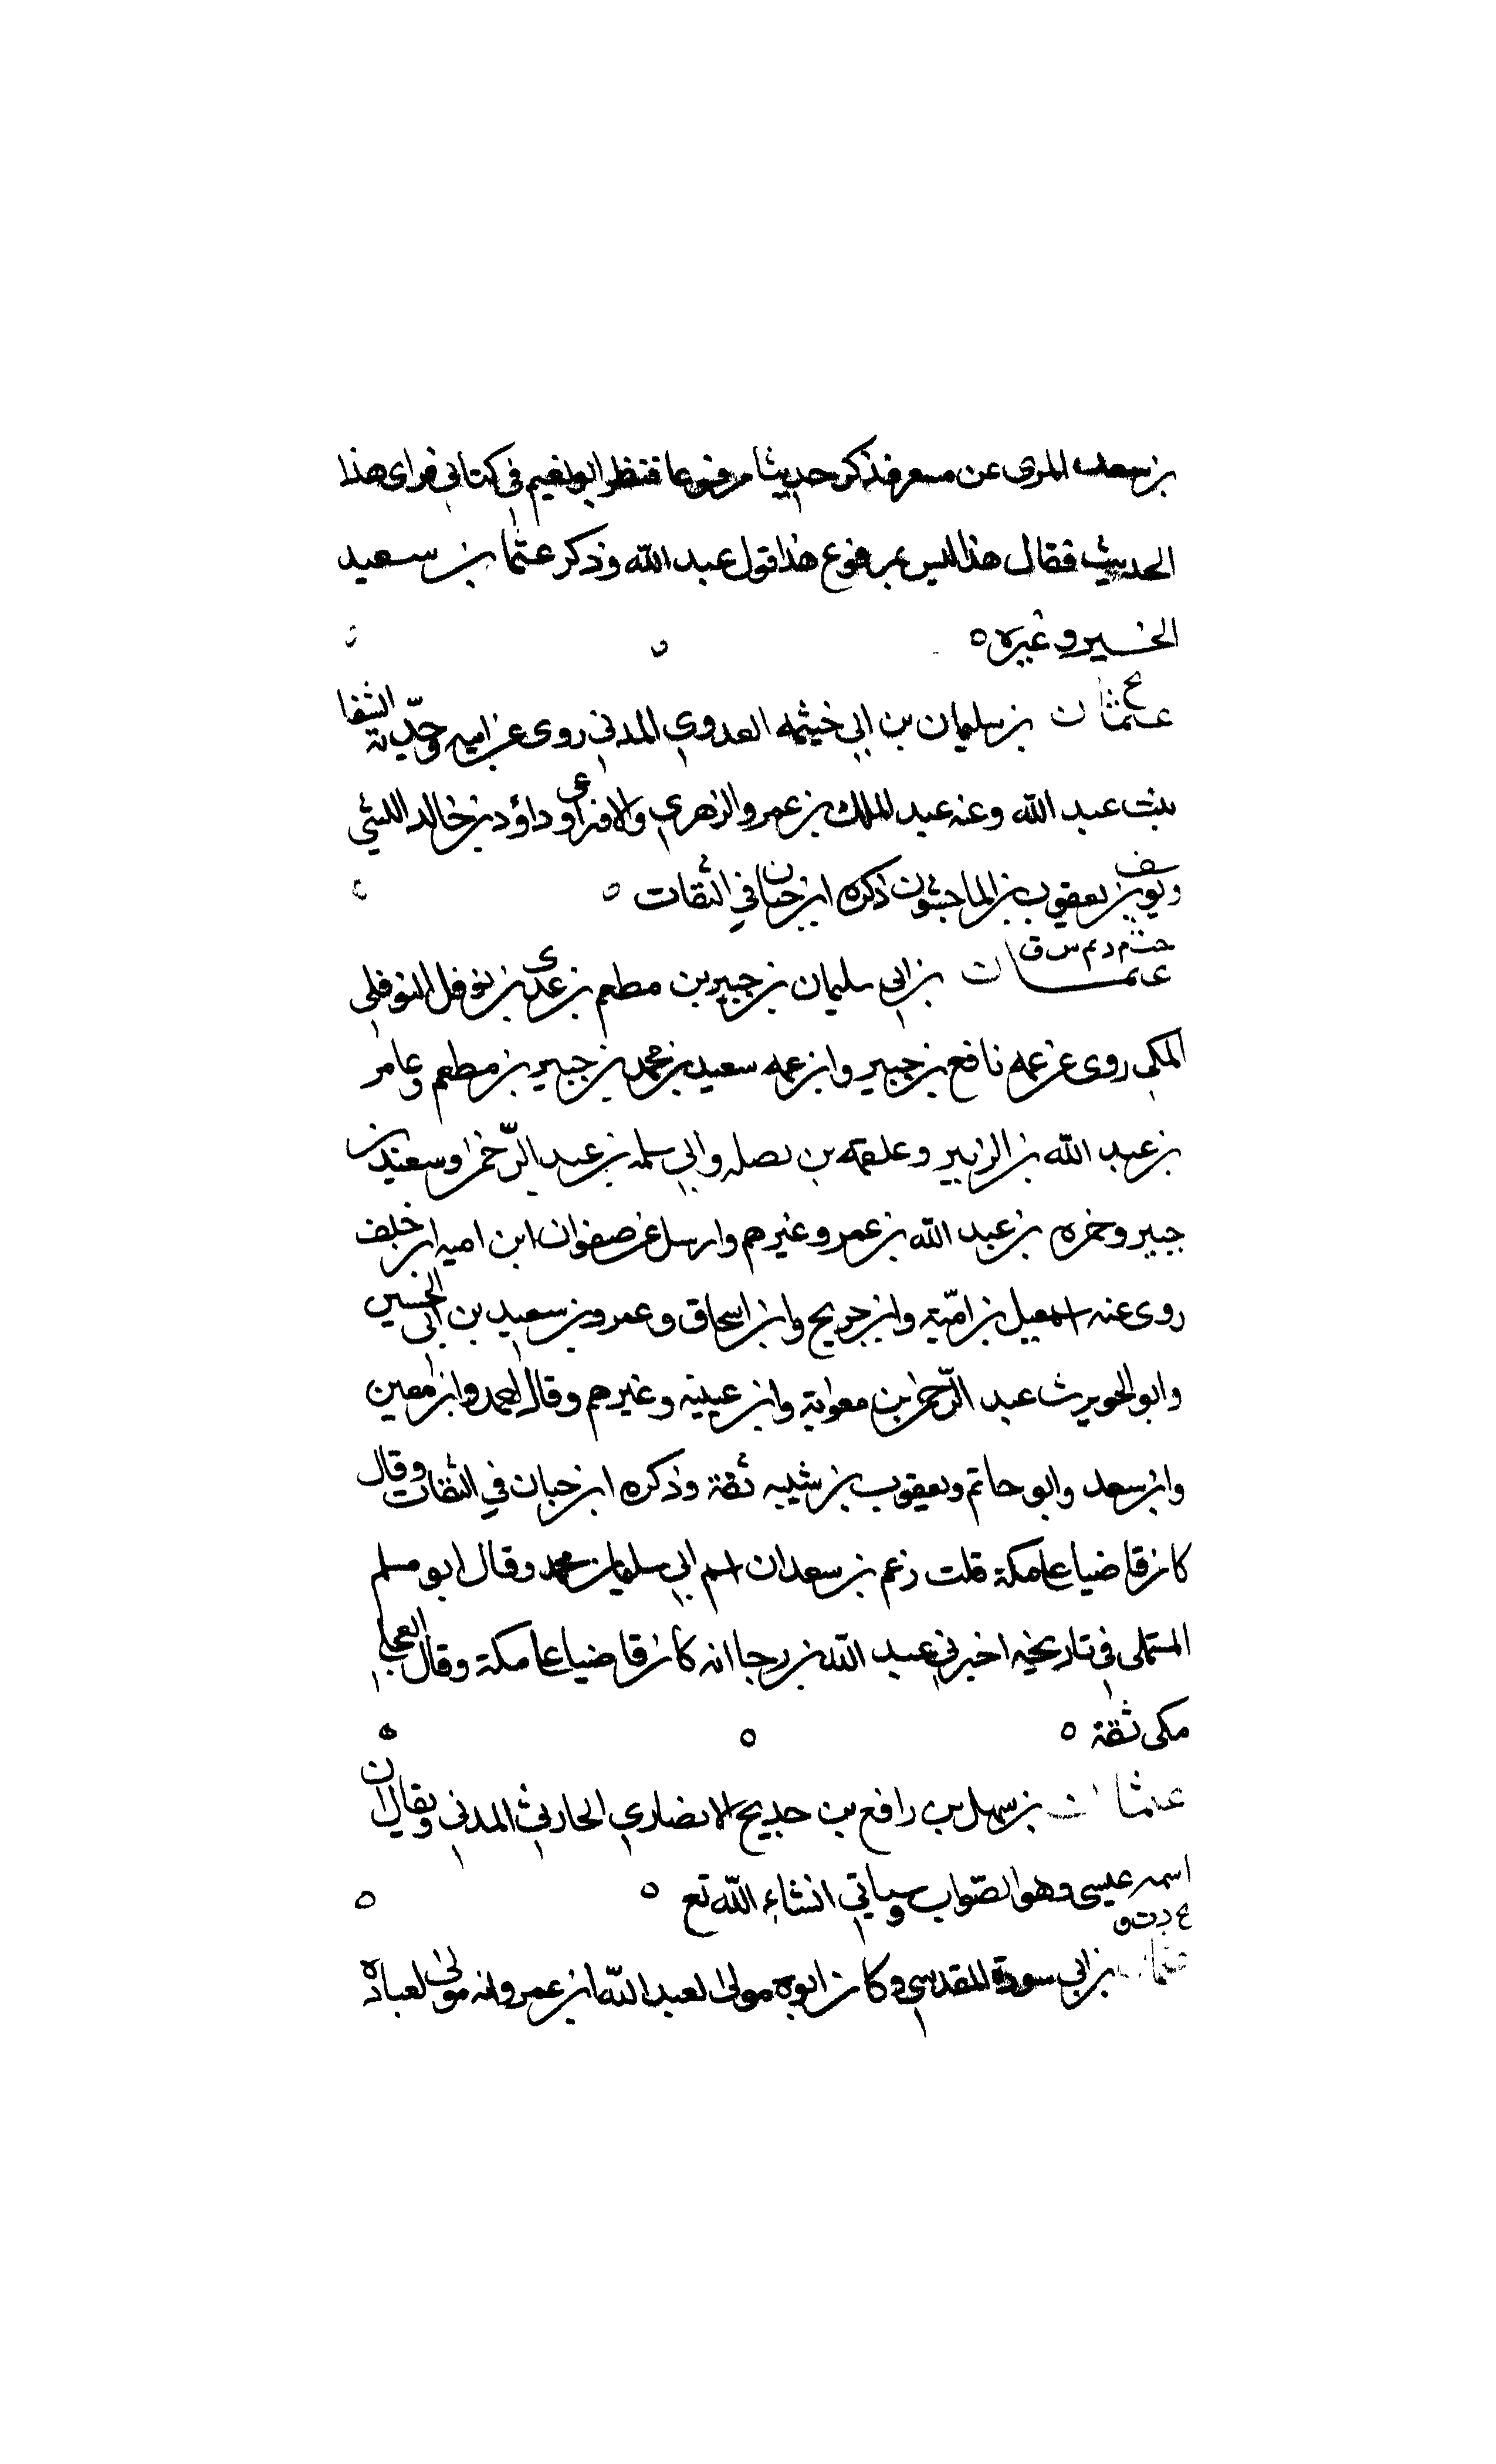 بن سعيد المري عن مسعر فذكر حديثا مرفوعا فنظر ابو نعيم في كتابي فراى هذا
الحديث فقال هذا ليس بمرفوع هذا قول عبد الله وذكر عثمان بن سعيد
الخير وغيره ه
ع
عثمان بن سليمان بن ابي خيثمه العدوي المدني روى عن ابيه وجدته الشفا
بنت عبد الله وعنه عبد الملك بن عمرو الزهري والاوزاعي وداؤد بن خالد الليثي
ويوسف بن يعقوب بن الماجشون ذكره ابن حبان في الثقات ه
خت م د تم س ق
عثمان بن ابي سليمان بن جبير بن مطعم بن عدى بن نوفل النوفلي
المكي روى عن عمه نافع بن جبير وابن عمه سعيد بن محمد بن جبير بن مطعم وعامر
بن عبد الله بن الزبير وعلقمه بن نضله وابي سلمه بن عبد الرّحمن وسعيد بن
جبير وحمزه بن عبد الله بن عمر وغيرهم وارسل عن صفوان ابن اميه ابن خلف
روى عنه اسمعيل بن اميّة وابن جريج وابن اسحاق وعمرو بن سعيد بن ابي الحسين
وابو الحويرث عبد الرّحمن بن معوية وابن عيينه وغيرهم وقال احمد وابن معين
وابن سعد وابو حاتم ويعقوب بن شيبه ثقة وذكره ابن حبان في الثقات وقال
كان قاضيا على مكة قلت زعم بن سعد ان اسم ابي سليمان محمد وقال ابو مسلم
المستملي في تاريخه اخبرني عبد الله بن رجا انه كان قاضيا على مكة وقال العجلي
مكي ثقة ه ه ه
عثمان بن سهل بن رافع بن خديج الانصاري الحارثي المدني ويقال ان
اسمه عيسى وهو الصّواب وسياتي انشاء الله تع ه ه
ع د ت ق
عثمان بن ابي سودة المقدسي وكان ابوه مولى لعبد الله ابن عمرو وانه مولى لعباده